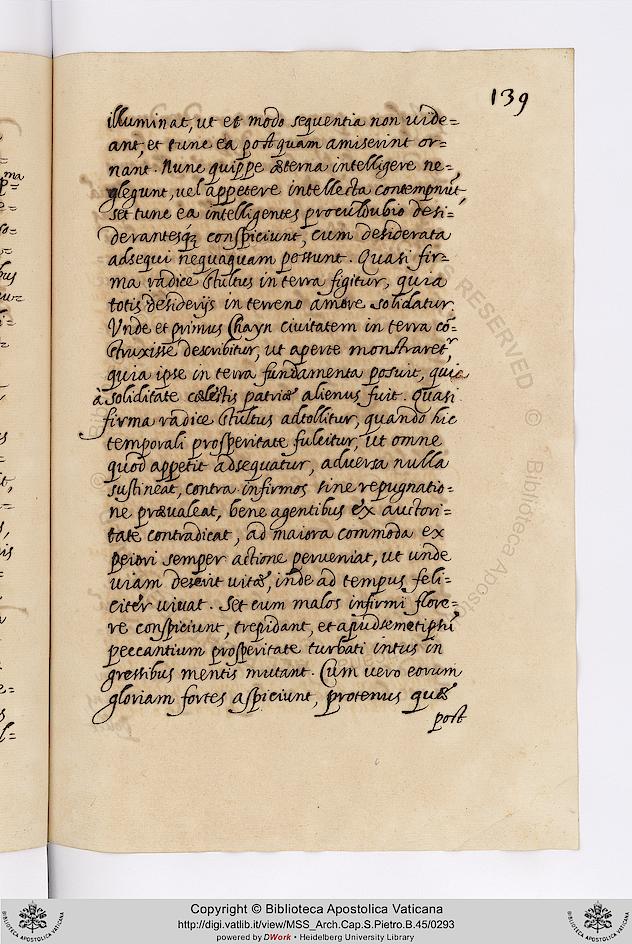 139
illuminat, ut et modo sequentia non vide=
ant, et tunc ea postquam amiserint or=
nant. Nunc quippe æterna intelligere ne=
glegunt, vel appetere intellecta contemnūt,
set tunc ea intelligentes proculdubio desi=
derantesq; conspiciunt, cum desiderata
adsequi nequaquam possunt. Quasi fir=
ma radice stultus in terra figitur, quia
totis desiderijs in terreno amore solidatur.
Unde et primus Chayn civitatem in terra cō=
struxisse describitur, ut aperte monstraretr
quia ipse in terra fundamenta posuit, quia
à soliditate cælestis patriæ alienus fuit. Quasi
firma radice stultus adtollitur, quando hic
temporali prosperitate fulcitur, ut omne
quod appetit adsequatur, adversa nulla
sustineat, contra infirmos sine repugnatio=
ne prævaleat, bene agentibus ex auctori=
tate contradicat, ad maiora commoda ex
peiori semper actione perveniat, ut unde
viam deserit vitæ, inde ad tempus feli=
citer vivat. Set cum malos infirmi flore=
re conspiciunt, trepidant, et apudsemetipsi
peccantium prosperitate turbati intus in
gressibus mentis mutant. Cum vero eorum
gloriam fortes aspiciunt, protenus quæ
post
ma
S RESERVED © Biblioteca Apos
Copyright © Biblioteca Apostolica Vaticana
http://digi.vatlib.it/view/MSS_Arch.Cap.S.Pietro.B.45/0293
powered by DWork • Heidelberg University Library